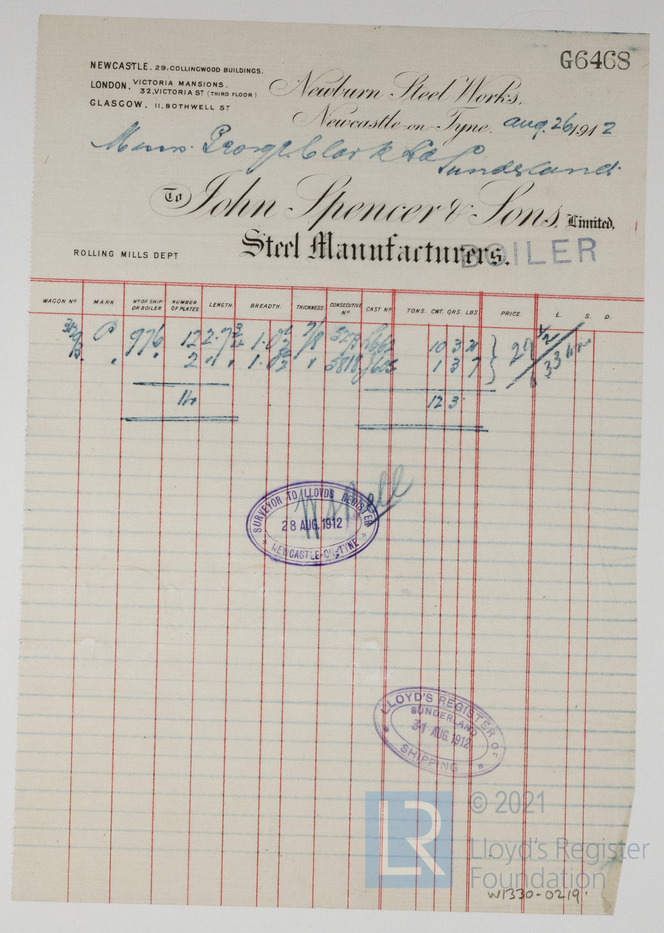 G6468
NEWCASTLE. 29. COLLINGWOOD BUILDINGS.
LONDON. VICTORIA MANSIONS.
32, VICTORIA ST (THIRD FLOOR)
GLASGOW. 11, BOTHWELL ST
Newburn Steel Works,
Newcastle-on-Tyne, Aug. 26 1912
Messrs. George Clark Ld
Sunderland
To John Spencer & Sons, Limited.
Steel Manufacturers.
BOILER
ROLLING MILLS DEPT
WAGON No MARK No OF SHIP OR BOILER NUMBER OF PLATES LENGTH. BREADTH. THICKNESS CONSECUTIVE No CAST No TONS. CWT. QRS. LBS. PRICE. L. S. D.
976 12 2.7 3/4 7/8 10 3 21
" " 2 " " " 1 3 7
14 12 3
W. Bell
SURVEYOR TO LLOYDS REGISTER
28 AUG. 1912
NEWCASTLE-ON-TYNE
LLOYD'S REGISTER OF
SUNDERLAND
31 AUG. 1912
SHIPPING
LR
© 2021
Lloyd's Register
Foundation
W1330-0219